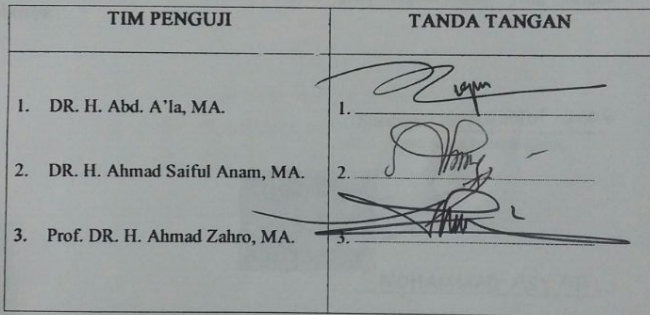 TIM PENGUJI
TANDA TANGAN
1. DR. H. Abd. A'la, MA.
1.
2. DR. H. Ahmad Saiful Anam, MA.
2.
3. Prof. DR. H. Ahmad Zahro, MA.
3.